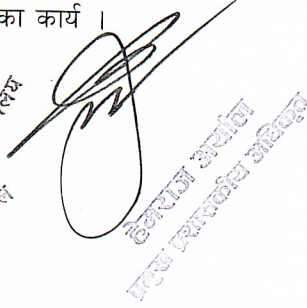 का कार्य ।
हेमराज अर्याल
प्रमुख प्रशासकीय अधिकृत